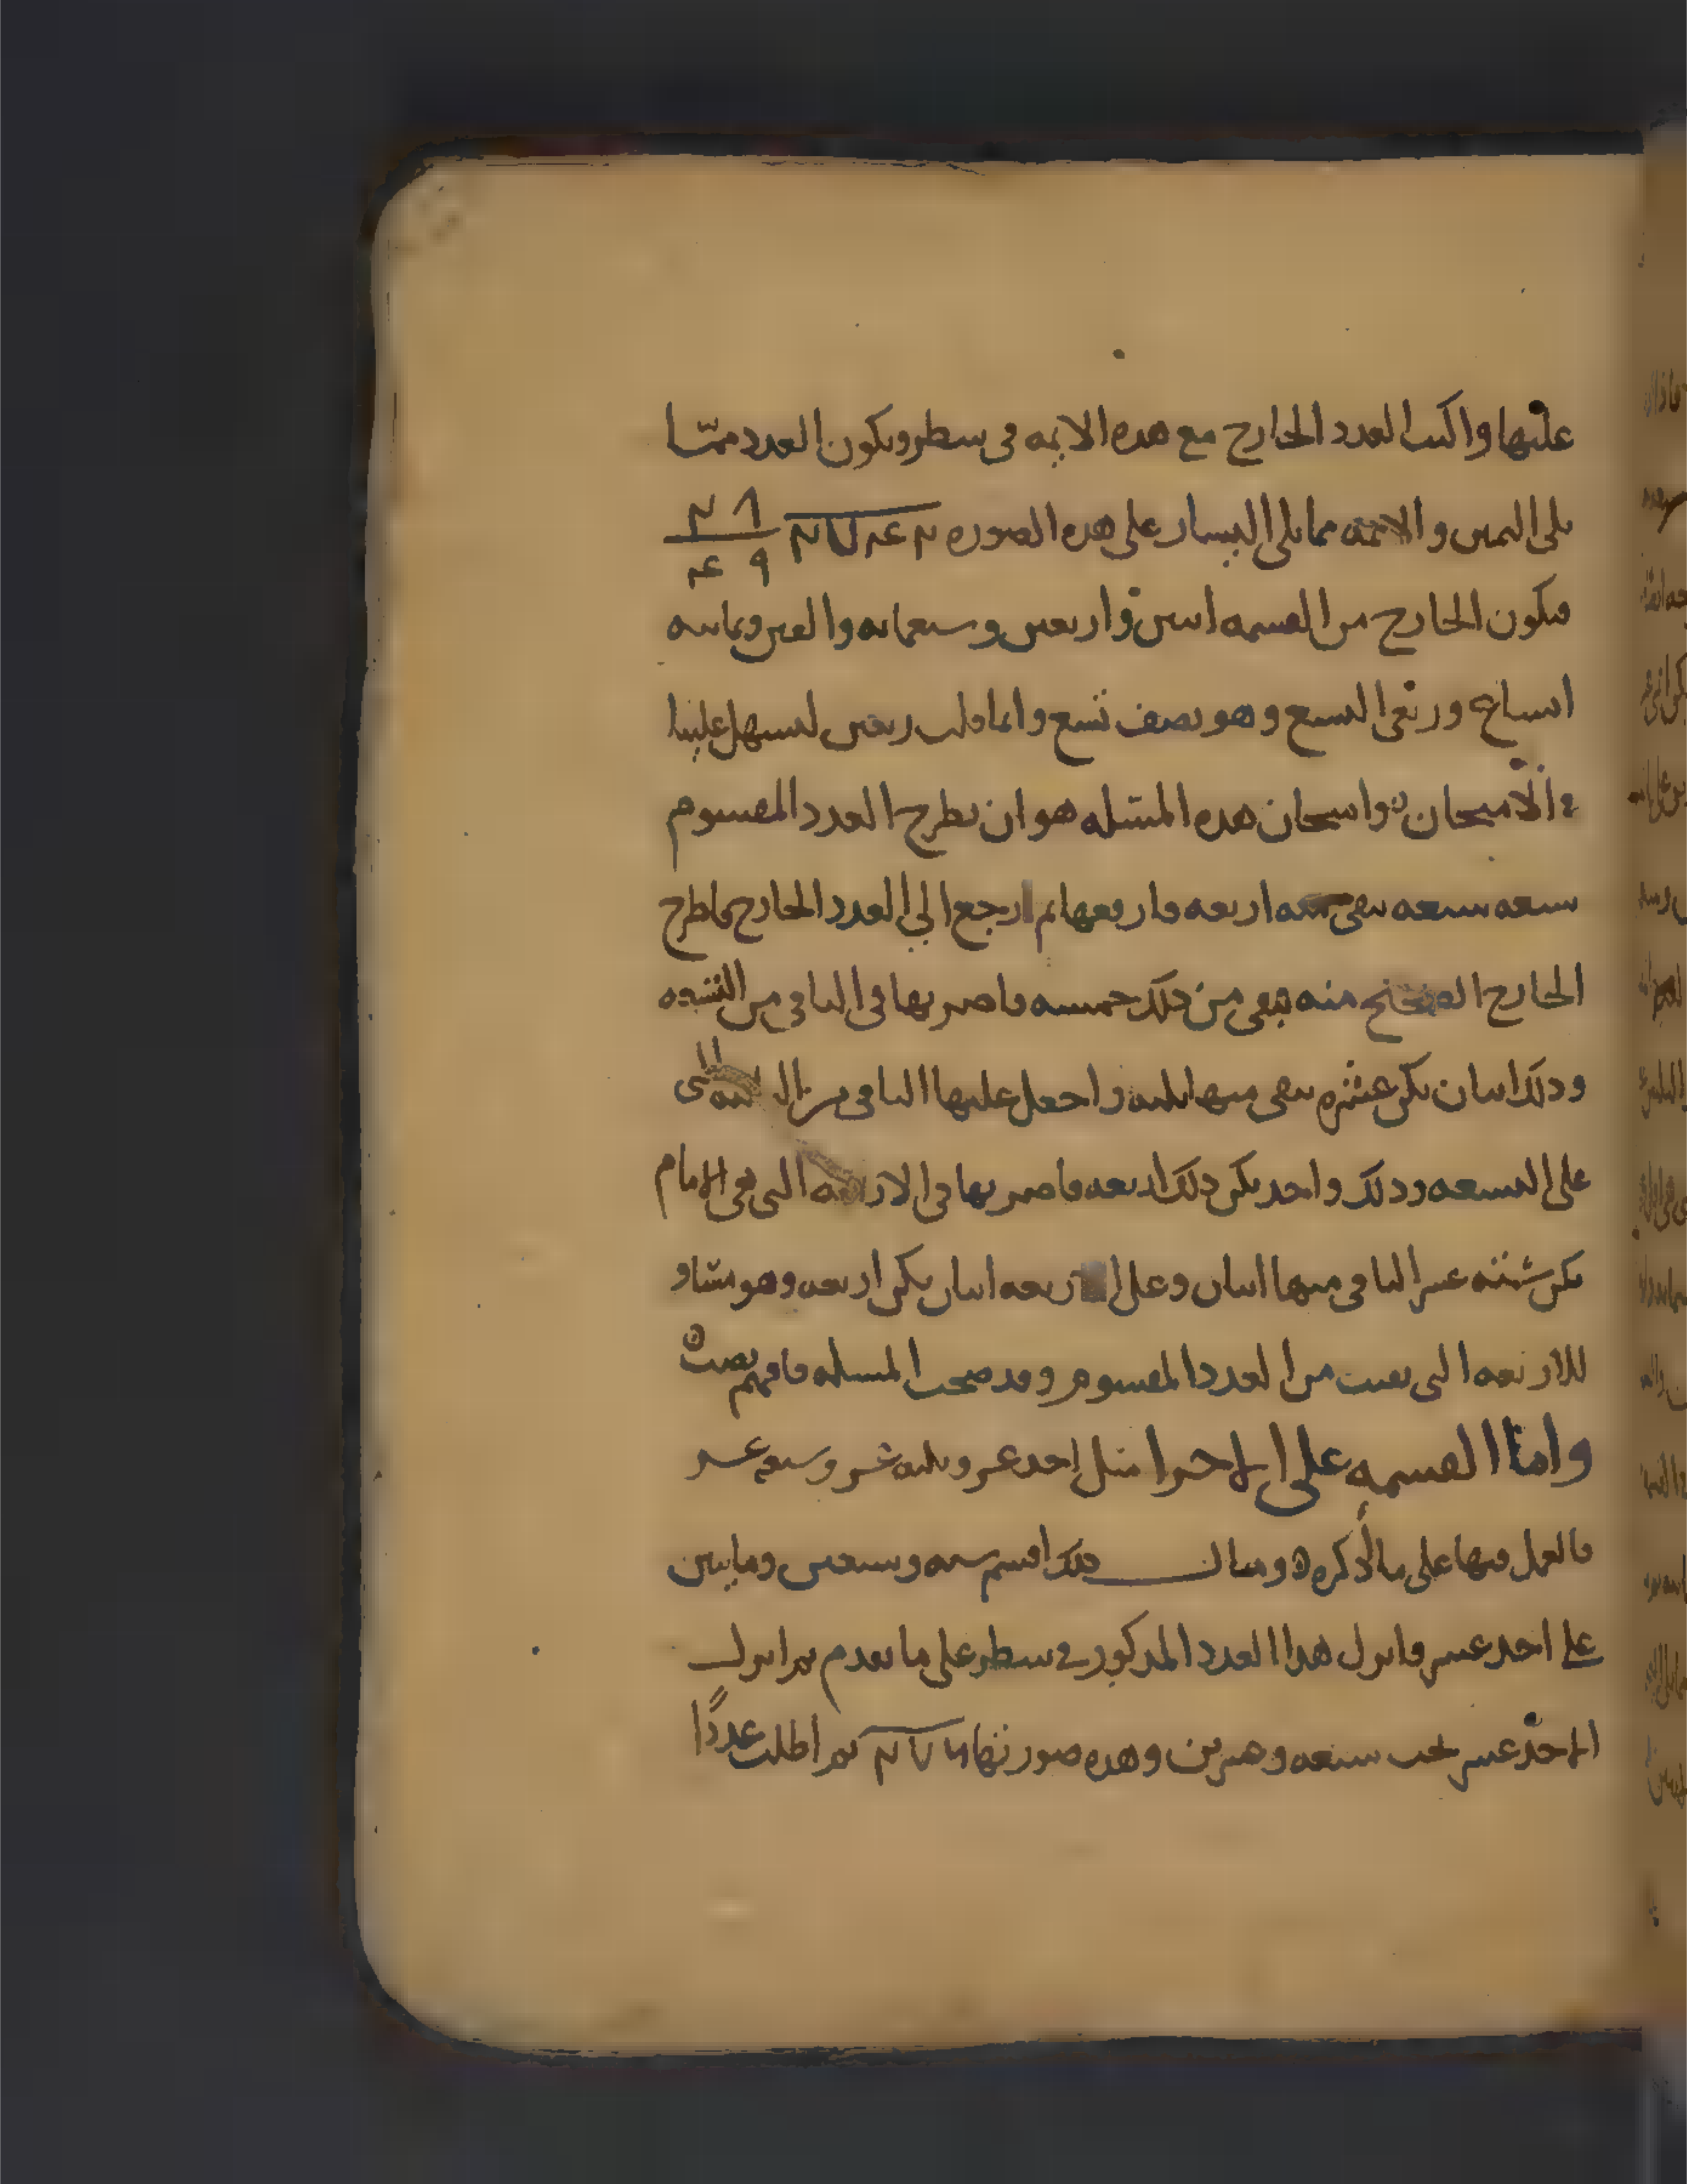 عليها واكتب العدد الخارج مع هذه الايمه فى سطر ويكون العدد ممّا
يلى اليمين والايمه مما يلى اليسار على هذه الصوره ٢٧٤٢ ٨ ٢ ٩ ٤
فيكون الخارج من القسمه اثنين واربعين وسبعمايه والفين وثمانيه
اتساع وربعى التسع وهو نصف تسع وانما قلت ربعين ليسهل علينا
فى الامتحان وامتحان هذه المسئله هو ان تطرح العدد المقسوم
سبعه سبعه يبقى معه اربعه فارفعها ثم ارجع الى العدد الخارج فاطرح
الخارج الصحيح منه يبقى من ذلك خمسه فاضربها فى الباقى من التسعه
وذلك اثنان يكن عشره يبقى منها ثلثه واحمل عليها الباقى من الثمانيه التى
على التسعه وذلك واحد يكن ذلك اربعه فاضربها فى الاربعه التى هى الامام
يكن ستته عشر الباقى منها اثنان وعلى الاربعه اثنان يكن اربعه وهو مساو
للاربعه التى بقيت من العدد المقسوم وقد صحت المسئله فافهم تصب
واما القسمه على الاجزا مثل احد عشر وثلثه عشر وسبعه عشر
فالعمل فيها على ما اذكره ومثال ذلك اقسم سته وسبعين ومايتين
على احد عشر فانزل هذا العدد المذكور فى سطر على ما تقدم ثم انزل
الاحد عشر تحت سبعه وعشرين وهذه صورتها ٢٧٦ ثم اطلب عددًا